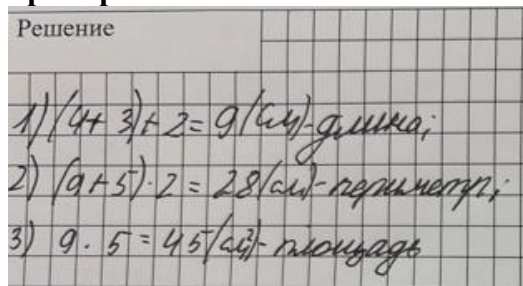 Решение
1) (4+3)+2=9(см)-длина;
2) (9+5)·2=28(см)-периметр;
3) 9·5=45(см²)-площадь